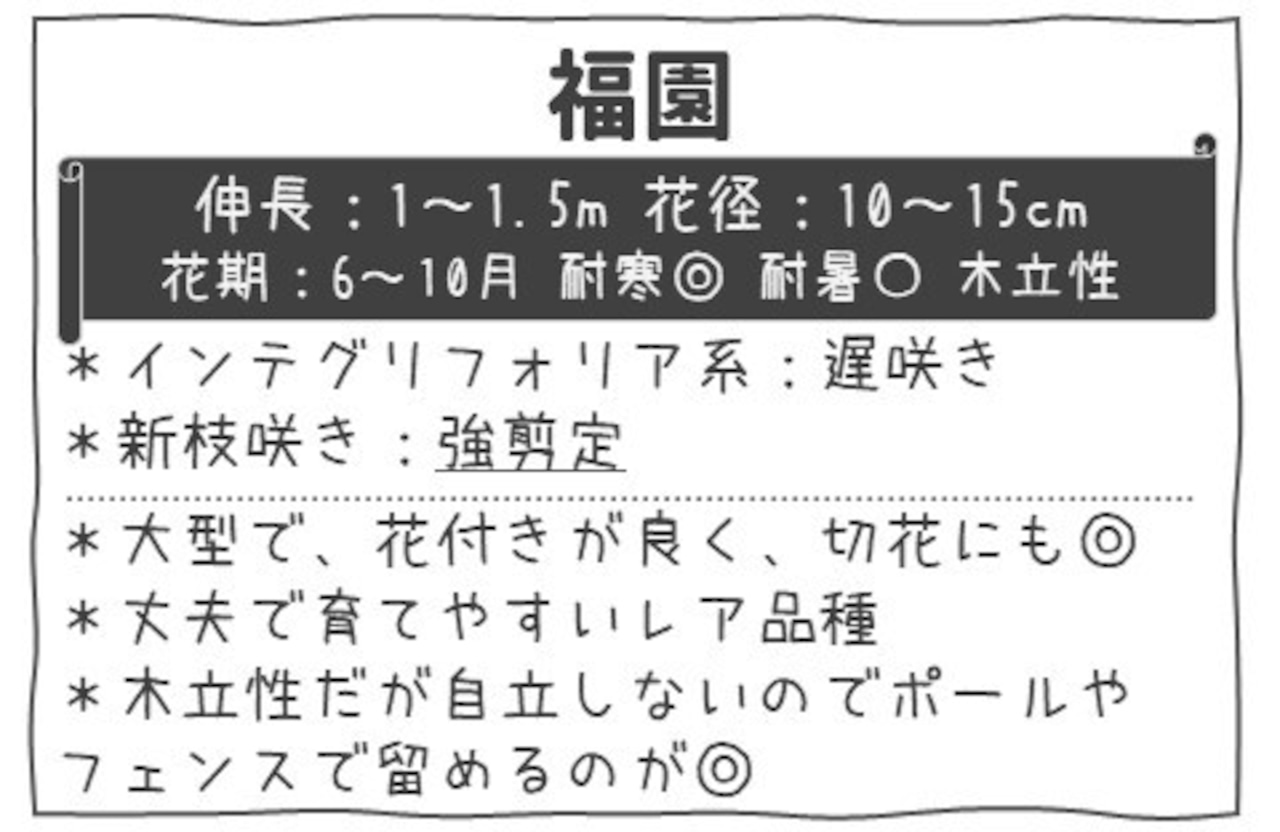 福園
伸長：1〜1.5m 花径：10〜15cm
花期：6〜10月 耐寒◎ 耐暑〇 木立性
＊インテグリフォリア系：遅咲き
＊新枝咲き：強剪定
＊大型で、花付きが良く、切花にも◎
＊丈夫で育てやすいレア品種
＊木立性だが自立しないのでポールや
フェンスで留めるのが◎